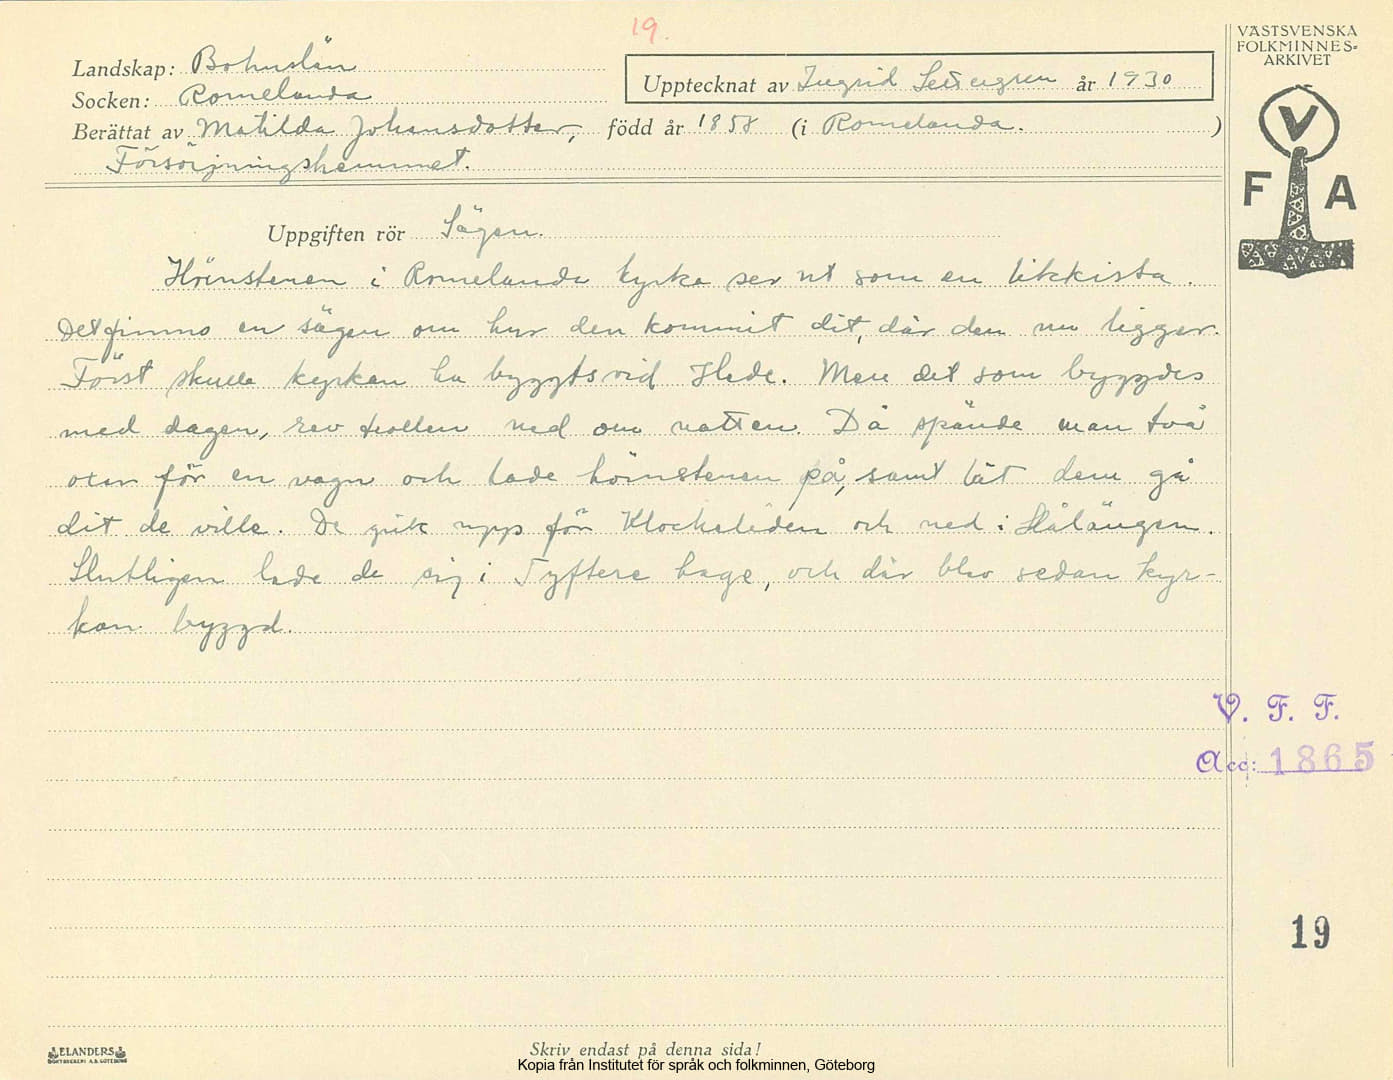 19.
VÄSTSVENSKA
FOLKMINNES-
ARKIVET
V
F A
Landskap: Bohuslän
Upptecknat av Ingrid år 1930
Socken: Romelanda
Berättat av Matilda Johansdotter, född år 1858 (i Romelanda. )
Försörjningshemmet.
Uppgiften rör Sägen.
Hörnstenen i Romelanda kyrka ser ut som en likkista.
Det finns en sägen om hur den kommit dit, där den nu ligger.
Först skulle kyrkan ha byggts vid Hede. Men det som byggdes
med dagen, rev trollen ned om natten. Då spände man två
oxar för en vagn och lade hörnstenen på, samt lät dem gå
dit de ville. De gick upp för Klockeliden och ned i Hålängen.
Slutligen lade de sig i Tyftere hage, och där blev sedan kyr-
kan byggd.
V. F. F.
Acc: 1865
19
ELANDERS
BOKTRYCKERI A.B. GÖTEBORG
Skriv endast på denna sida!
Kopia från Institutet för språk och folkminnen, Göteborg